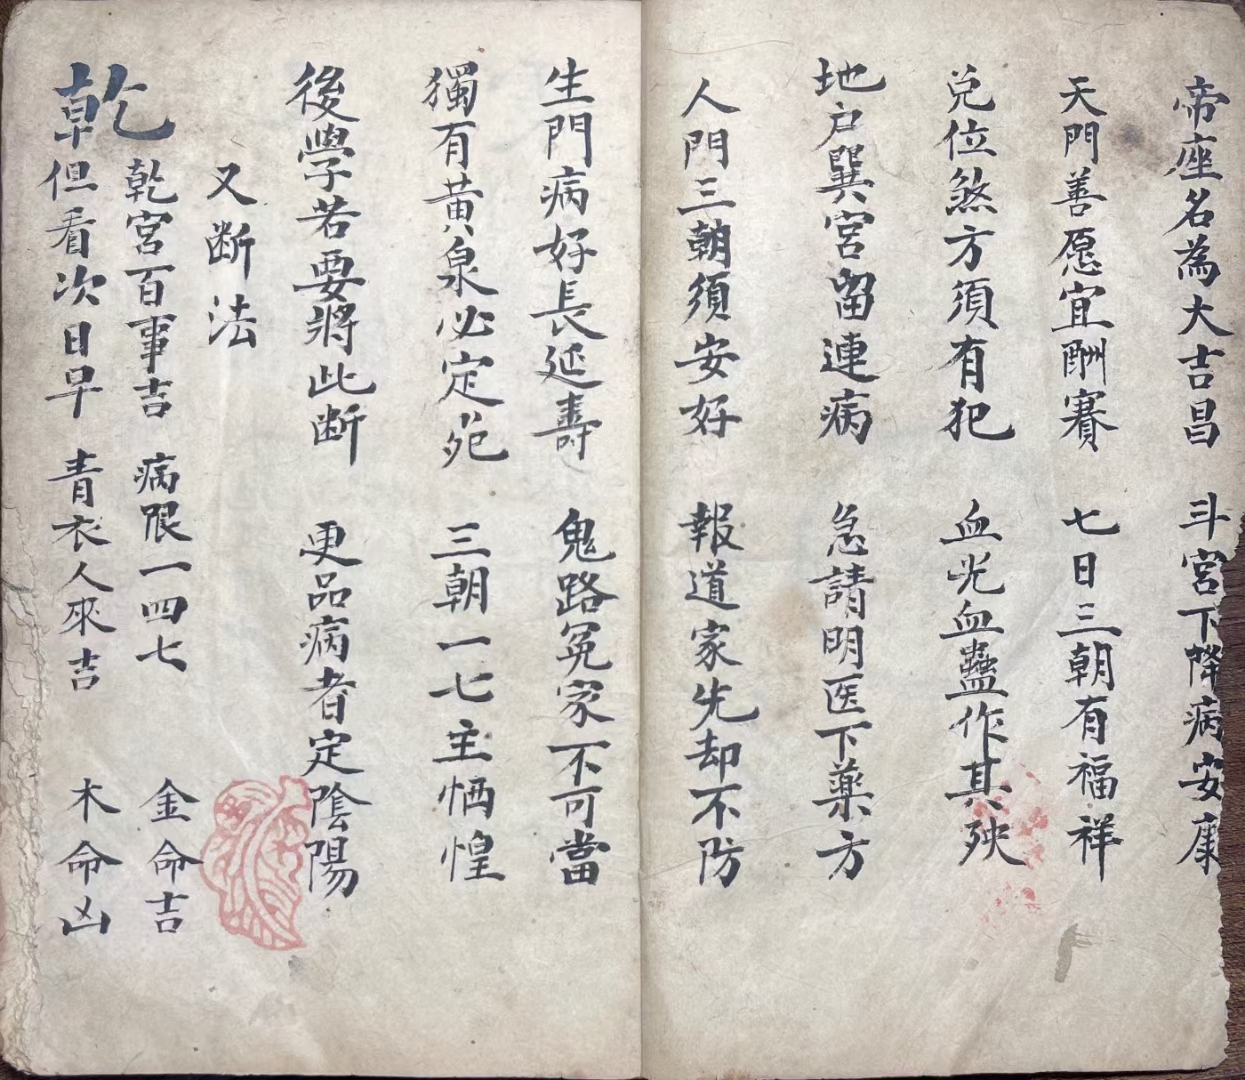 帝座名為大吉昌 斗宮下降病安康
天門善愿宜酬賽 七日三朝有福祥
兌位煞方須有犯 血光血蠱作其殃
地户巽宮留連病 急請明医下藥方
人門三朝須安好 報道家先却不防
生門病好長延壽 鬼路冤家不可當
獨有黃泉必定死 三朝一七主恓惶
後學若要將此断 更品病者定陰陽
又断法
乾
乾宮百事吉 病限一四七 金命吉
但看次日早 青衣人來吉 木命凶